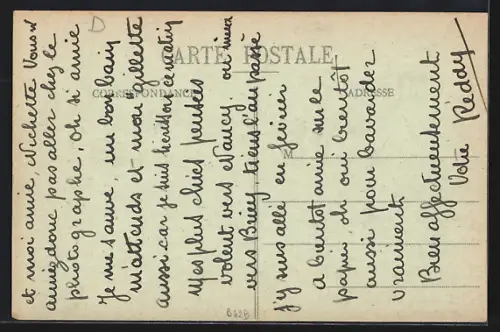 D
CARTE POSTALE
CORRESPONDANCE
ADRESSE
M
et moi annie, Nichette Vous n'
auriez donc pas aller chez le
photographe, oh si annie
Je me sauve, un bon bain
m'attends et moi Gillette
aussi car je suis hérisson ce matin
mes plus chics pensées
volent vers Nancy. ou mieux
vers Briey tiens l'an passé
j'y suis allé en février
a bientot annie sur le
papier oh oui bientôt
aussi pour bavarder
vraiment
Bien affectueusement
Votre Reddy